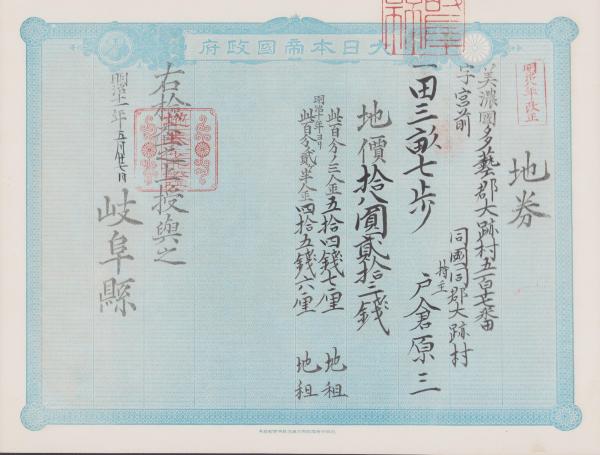 大日本帝國政府
明治九年改正
地券
美濃國多藝郡大跡村五百七番
字宮前
同國同郡大跡村
持主 戸倉原三
一田三畝七歩
地價拾八圓貳拾三錢
此百分ノ三金五拾四錢七厘 地租
明治十年ヨリ
此百分ノ貳半金四拾五錢六厘 地租
右検査之上授與之
明治十一年五月廿七日
岐阜縣